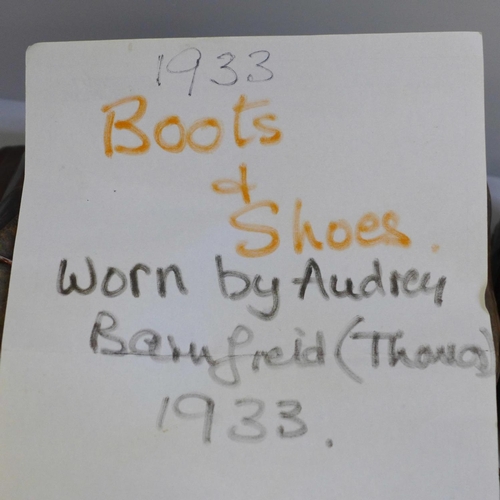 1933
Boots
&
Shoes.
Worn by Audrey
Barnfreid (Thomas)
1933.